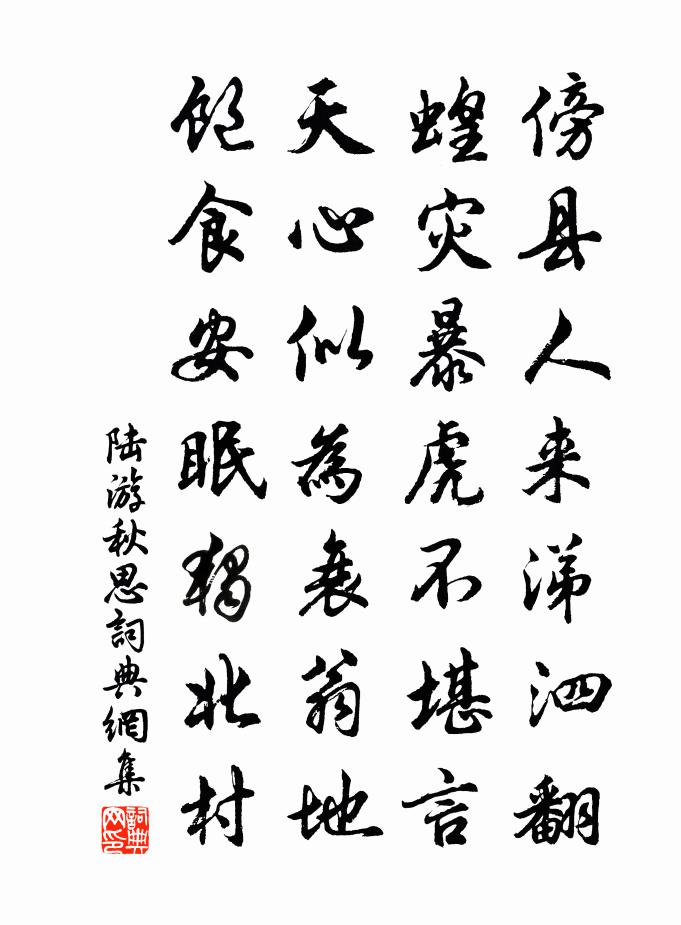 傍县人来涕泗翻
蝗灾暴虎不堪言
天心似为衰翁地
饱食安眠独北村
陆游秋思詞典網集
詞典
网印